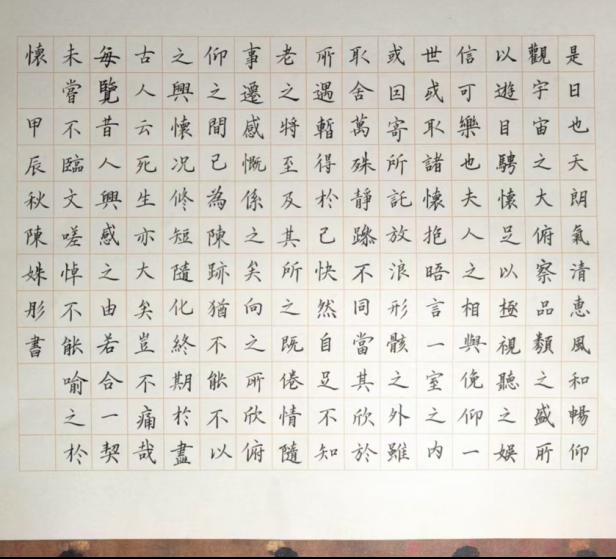 是日也天朗氣清惠風和暢仰
觀宇宙之大俯察品類之盛所
以遊目騁懷足以極視聽之娛
信可樂也夫人之相與俛仰一
世或取諸懷抱晤言一室之內
或因寄所託放浪形骸之外雖
取舍萬殊靜躁不同當其欣於
所遇暫得於己快然自足不知
老之將至及其所之既倦情隨
事遷感慨係之矣向之所欣俯
仰之間已為陳跡猶不能不以
之興懷况修短隨化終期於盡
古人云死生亦大矣豈不痛哉
每覽昔人興感之由若合一契
未嘗不臨文嗟悼不能喻之於
懷 甲辰秋陳姝彤書